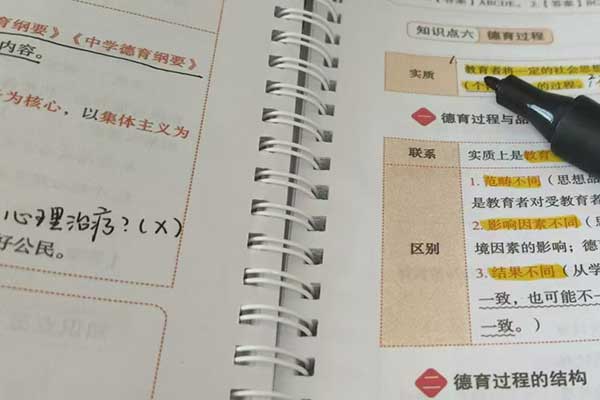 育纲要》《中学德育纲要》
内容。
为核心，以集体主义为
心理治疗?(X)
好公民。
知识点六 德育过程
实质
教育者将一定的社会思想
的过程。
一 德育过程与品
联系 实质上是教育
区别
1. 范畴不同（思想品
是教育者对受教育者
2. 影响因素不同（思
境因素的影响；德
3. 结果不同（从学
一致，也可能不一
一致。）
二 德育过程的结构